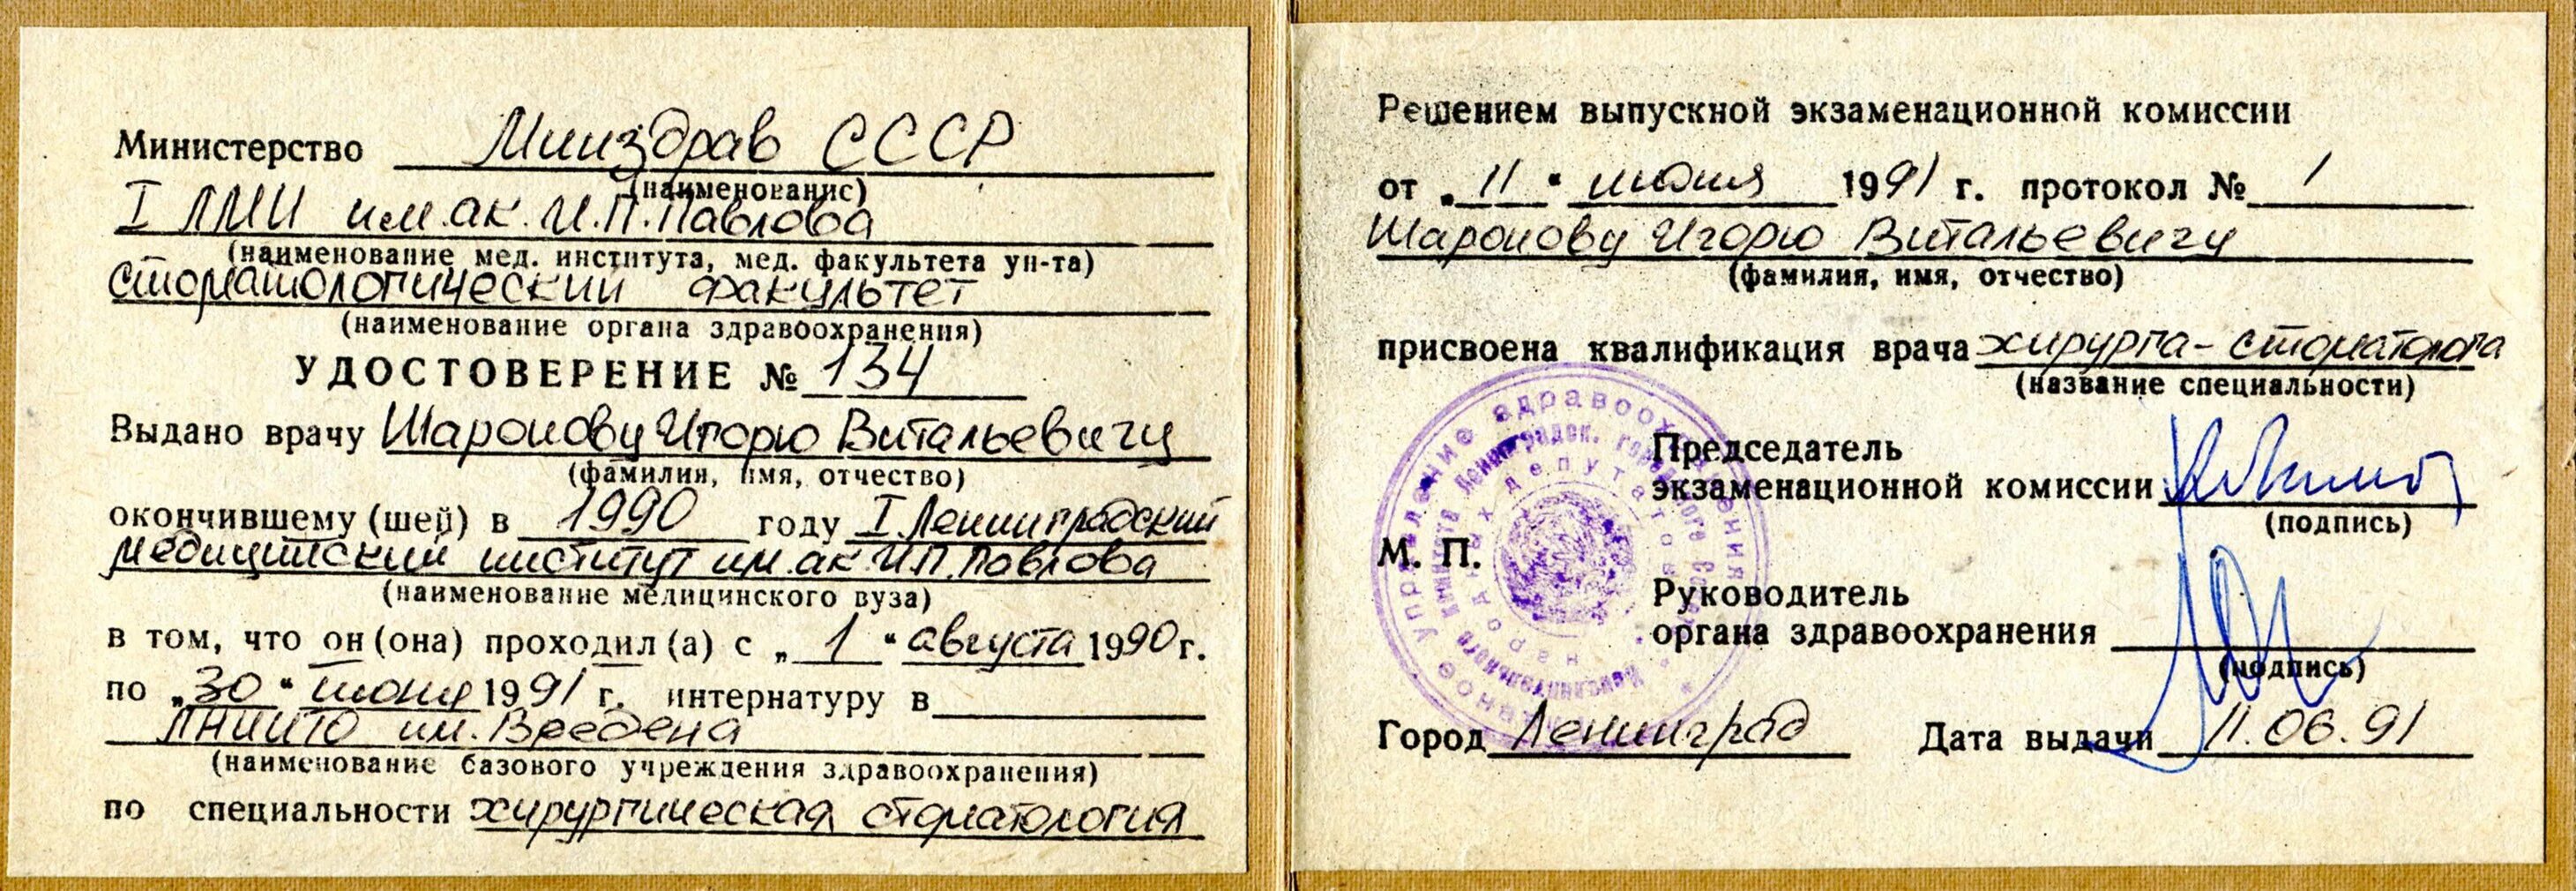 Министерство Минздрав СССР
(наименование)
I ЛМИ им. ак. И.П. Павлова
(наименование мед. института, мед. факультета ун-та)
стоматологический факультет
(наименование органа здравоохранения)
УДОСТОВЕРЕНИЕ № 134
Выдано врачу Шаронову Игорю Витальевичу
(фамилия, имя, отчество)
окончившему (шей) в 1990 году I Ленинградский
медицинский институт им. ак. И.П. Павлова
(наименование медицинского вуза)
в том, что он (она) проходил (а) с „1“ августа 1990 г.
по „30“ июня 1991 г. интернатуру в
ЛНИИТО им. Вредена
(наименование базового учреждения здравоохранения)
по специальности хирургическая стоматология
Решением выпускной экзаменационной комиссии
от „11“ июня 1991 г. протокол № 1
Шаронову Игорю Витальевичу
(фамилия, имя, отчество)
присвоена квалификация врача хирурга-стоматолога
(название специальности)
Председатель
экзаменационной комиссии
(подпись)
М. П.
Руководитель
органа здравоохранения
(подпись)
Город Ленинград Дата выдачи 11.06.91
управление здравоохранения
Ленинградск. городского
народных депутатов